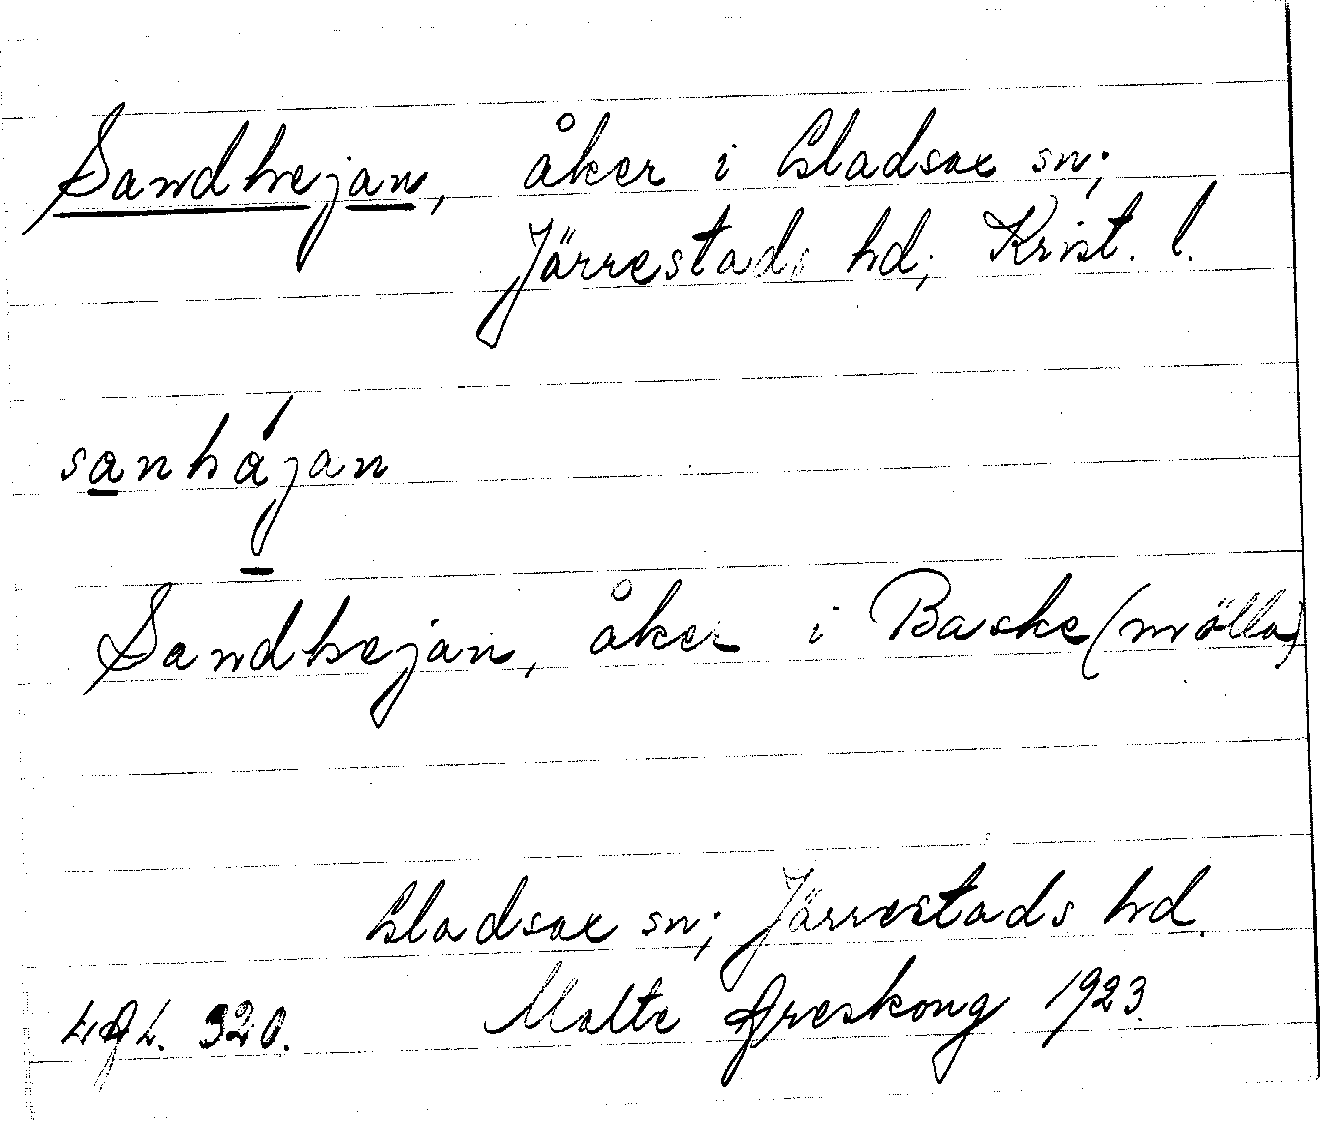 Sandhejan, åker i Gladsax sn;
Järrestads hd; Krist. l.
sanhájan
Sandhejan, åker i Baske(mölla)
Gladsax sn; Järrestads hd.
320. Malte Areskong 1923.